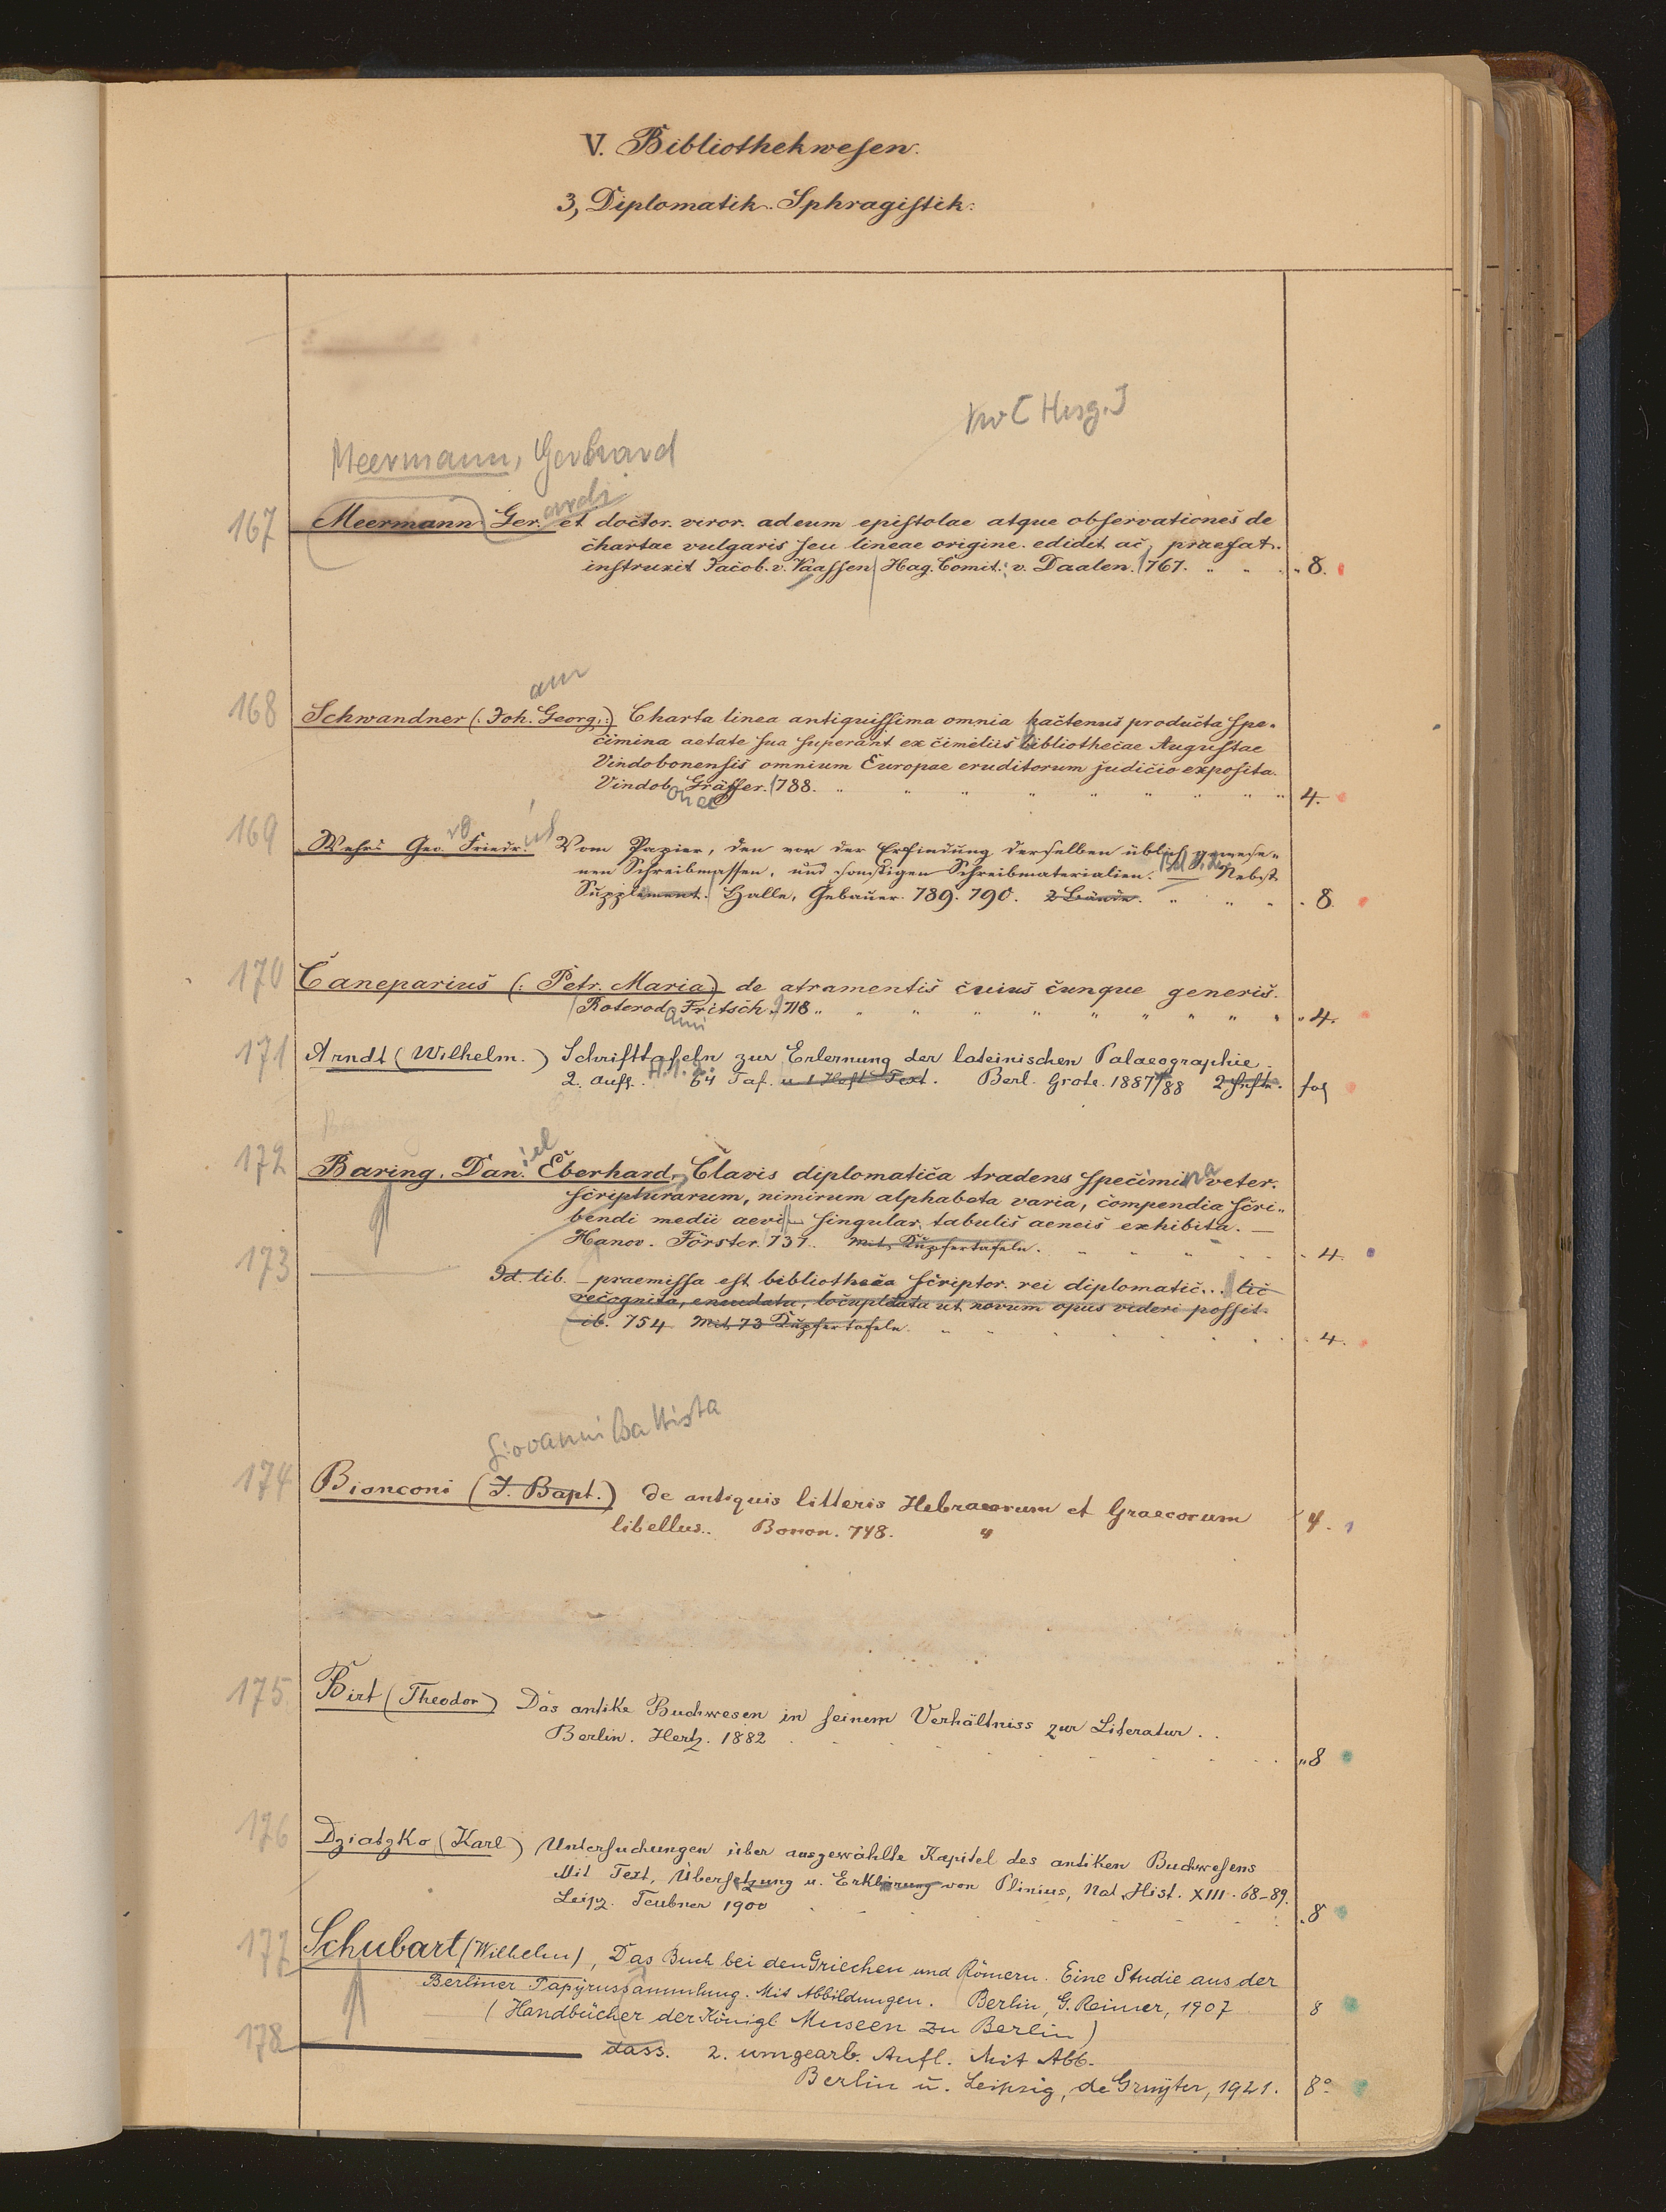 V. Bibliothekwesen.
3, Diplomatik. Sphragistik.
[Hrsg.]
Meermann, Gerhard
ardi
167 Meermann Ger. et doctor. viror. ad eum epistolae atque observationes de
chartae vulgaris seu lineae origine. edidit ac praefat.
instruxit Jacob. v. Vaassen Hag. Comit. v. Daalen. 1767. " " " 8.
ann
168 Schwandner (: Joh. Georg. :) Charta linea antiquissima omnia hactenus producta spe-
cimina aetate sua superant ex cimeliis bibliothecae Augustae
Vindobonensis omnium Europae eruditorum judicio exposita.
Vindob. Gräffer. 1788. " " " " " " " " " 4.
onae
rg ich
169 Wehrs Geo. Friedr. Vom Papier, den vor der Erfindung derselben üblich gewese-
nen Schreibmassen, und sonstigen Schreibmaterialien. Nebst
Supplement. Halle, Gebauer. 789. 790. 2 Bände. " " " 8.
170 Caneparius (: Petr. Maria :) de atramentis cuius cunque generis.
Roterod. Fritsch. 718. " " " " " " " " " 4.
ami
171 Arndt (Wilhelm.) Schrifttafeln zur Erlernung der lateinischen Palaeographie.
2. Aufl. H. 1. 2. 64 Taf. u 1 Heft Text. Berl. Grote. 1887/88 2 Hefte. fol
iel
172 Baring, Dan. Eberhard, Clavis diplomatica tradens specimina veter.
scripturarum, nimirum alphabeta varia, compendia scri-
bendi medii aevi singular. tabulis aeneis exhibita. —
Hanov. Förster. 737. Mit Kupfertafeln. " " " " 4.
173 Id. lib. — praemissa est bibliotheca scriptor. rei diplomatic... lic
recognita, emendata, locupletata ut novum opus videri possit.
ib. 754 Mit 73 Kupfertafeln. " " " " 4.
Giovanni Battista
174 Bianconi (J. Bapt.) de antiquis litteris Hebraeorum et Graecorum
libellus. Bonon. 748. " 4.
175 Birt (Theodor) Das antike Buchwesen in seinem Verhältniss zur Literatur.
Berlin. Hertz. 1882 " 8
176 Dziatzko (Karl) Untersuchungen über ausgewählte Kapitel des antiken Buchwesens
Mit Text, Übersetzung u. Erklärung von Plinius, Nat. Hist. XIII. 68-89.
Leipz. Teubner 1900 8
177 Schubart (Wilhelm), Das Buch bei den Griechen und Römern. Eine Studie aus der
Berliner Papyrussammlung. Mit Abbildungen. Berlin, G. Reimer, 1907 8
(Handbücher der Königl Museen zu Berlin)
178 — dass. 2. umgearb. Aufl. Mit Abb.
Berlin u. Leipzig, de Gruyter, 1921. 8°